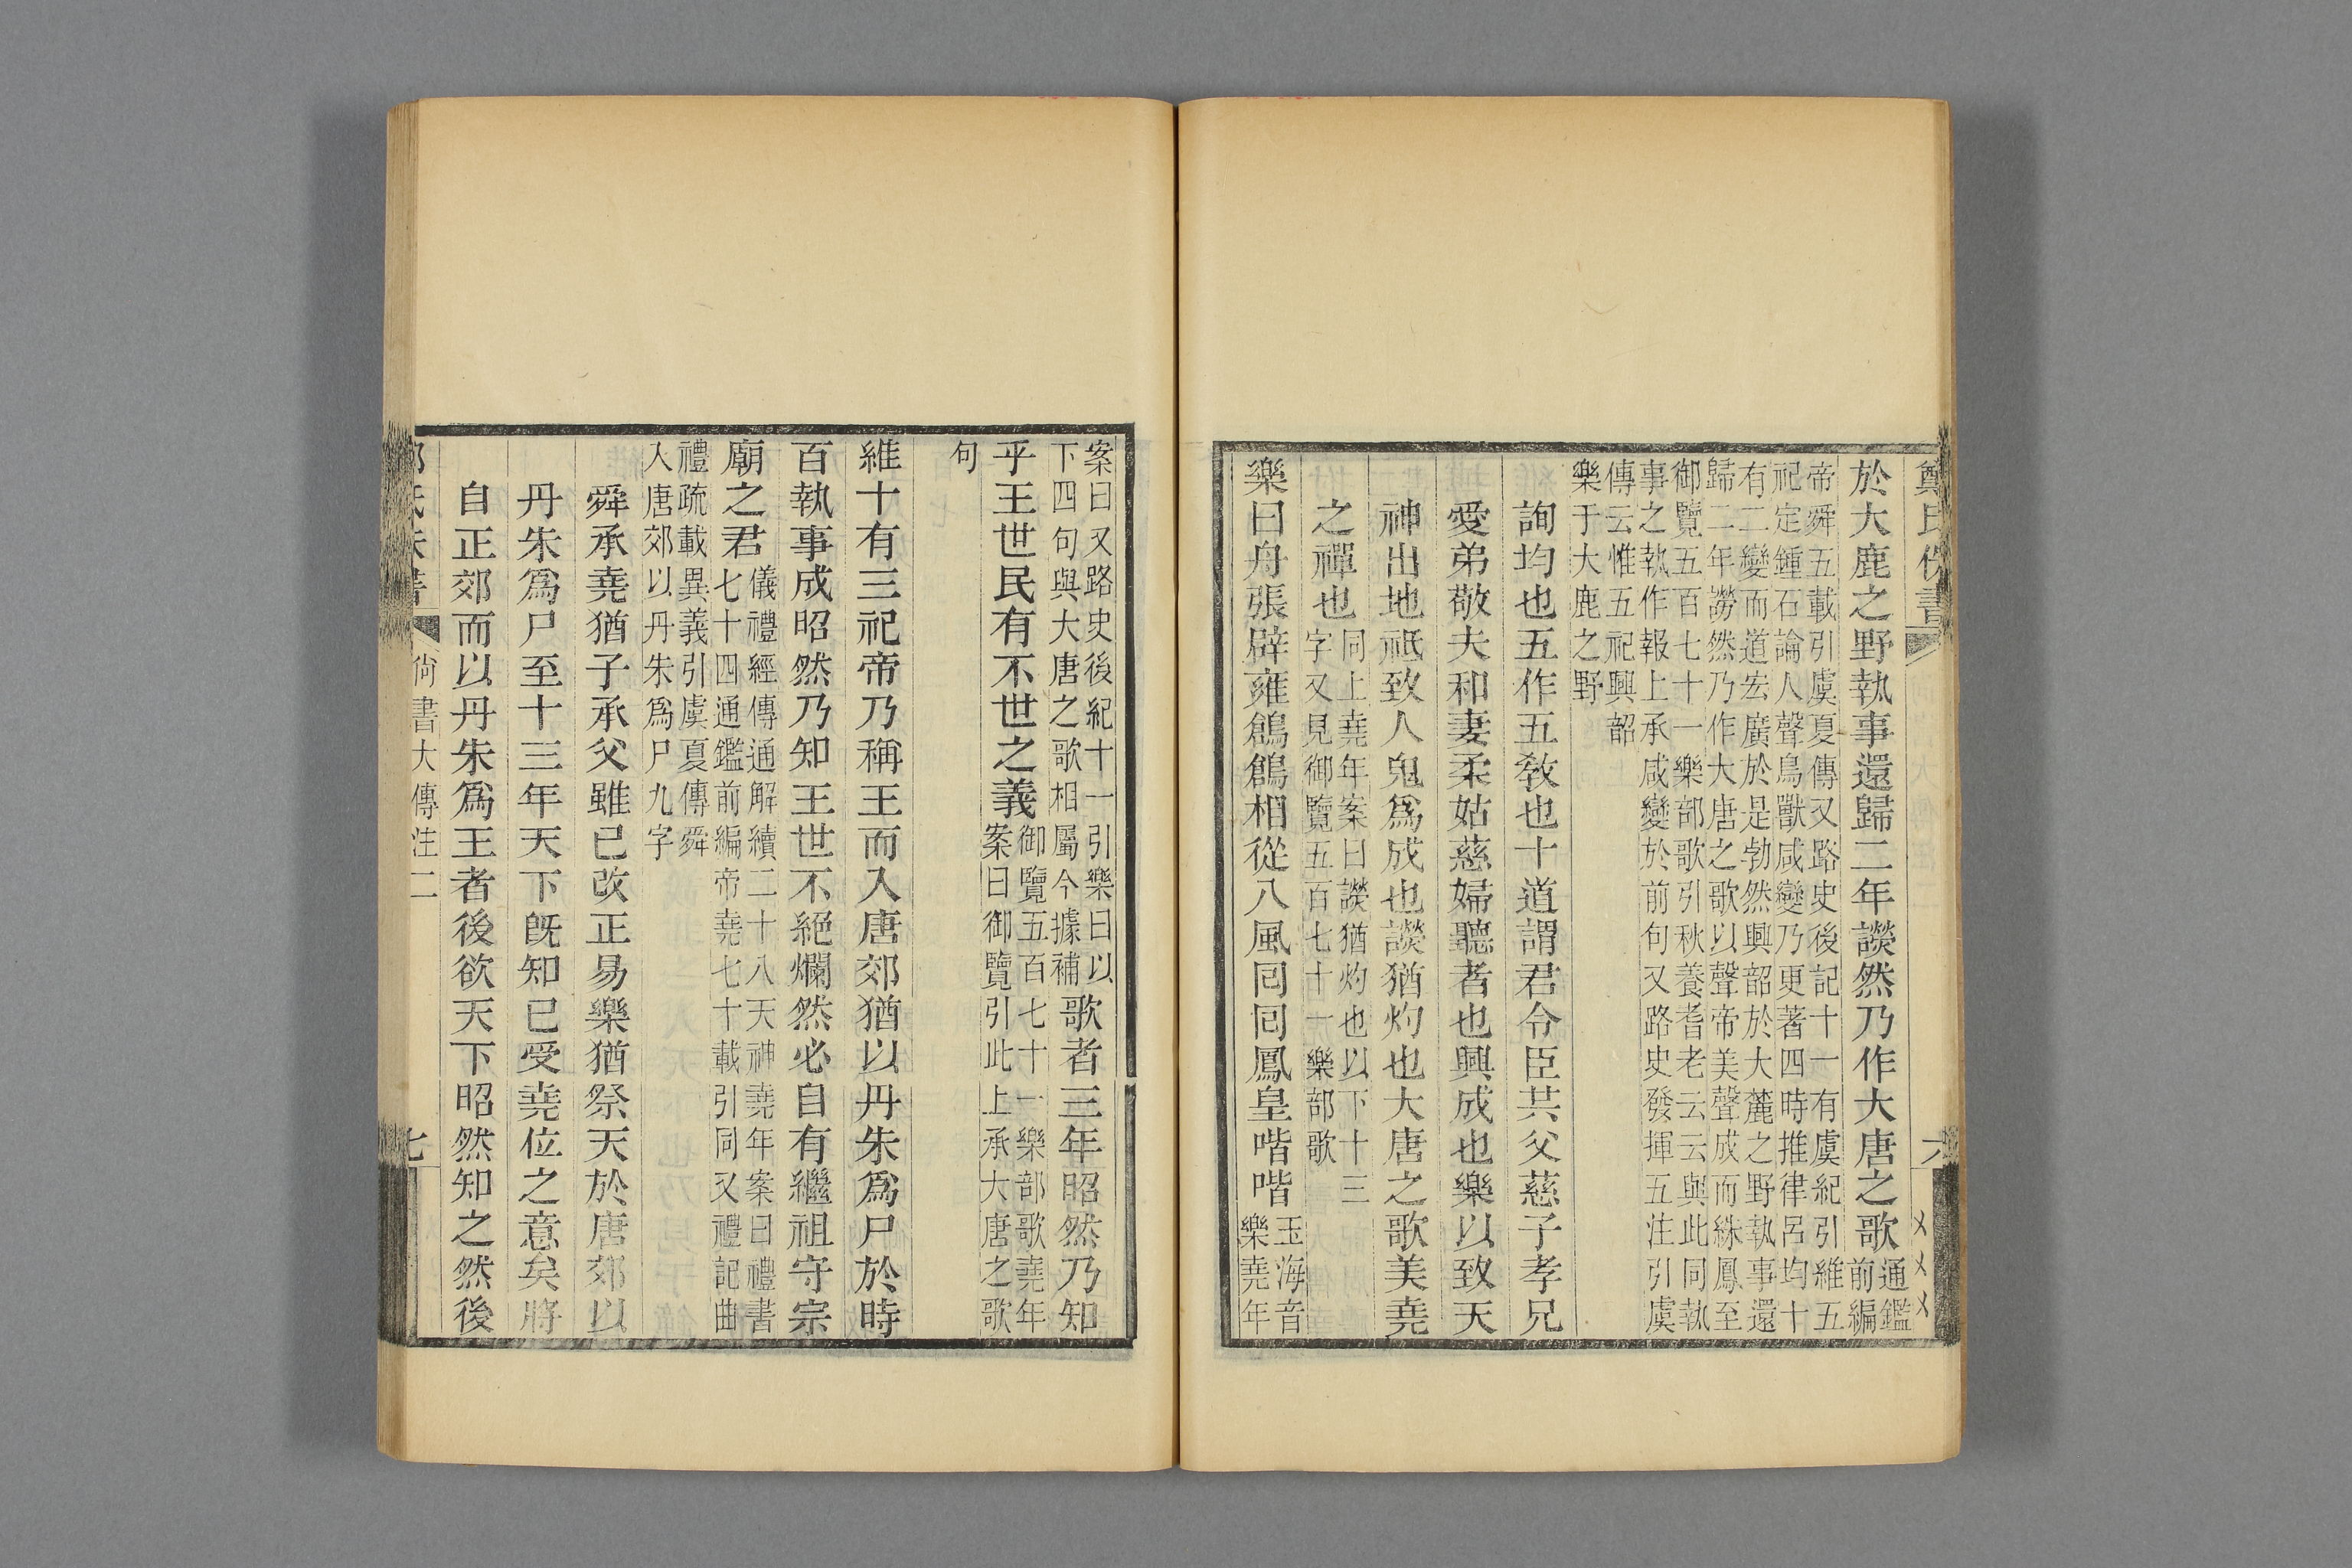 於大鹿之野執事還歸二年䜙然乃作大唐之歌通鑑前編
帝舜五載引虞夏傳又路史後記十一有虞紀引維五
祀定鍾石論人聲鳥獸咸變乃更著四時推律呂均十
有二變而道宏廣於是勃然興韶於大麓之野執事還
歸二年䜙然乃作大唐之歌以聲帝美聲成而絑鳳至
御覽五百七十一樂部歌引秋養耆老云云與此同執
事之執作報上承咸變於前句又路史發揮五注引虞
傳云惟五祀興韶
樂于大鹿之野
詢均也五作五敎也十道謂君令臣共父慈子孝兄
愛弟敬夫和妻柔姑慈婦聽者也興成也樂以致天
神出地祇致人鬼爲成也䜙猶灼也大唐之歌美堯
之禪也同上堯年案曰䜙猶灼也以下十三
字又見御覽五百七十一樂部歌
樂曰舟張辟雍鶬鶬相從八風囘囘鳳皇喈喈玉海音
樂堯年
鄭氏佚書
六
案曰又路史後紀十一引樂曰以
下四句與大唐之歌相屬今據補歌者三年昭然乃知
乎王世民有不世之義御覽五百七十一樂部歌堯年
案曰御覽引此上承大唐之歌
句
維十有三祀帝乃稱王而入唐郊猶以丹朱爲尸於時
百執事成昭然乃知王世不絕爛然必自有繼祖守宗
廟之君儀禮經傳通解續二十八天神堯年案曰禮書
七十四通鑑前編帝堯七十載引同又禮記曲
禮疏載異義引虞夏傳舜
入唐郊以丹朱爲尸九字
舜承堯猶子承父雖已改正易樂猶祭天於唐郊以
丹朱爲尸至十三年天下旣知已受堯位之意矣將
自正郊而以丹朱爲王者後欲天下昭然知之然後
尙書大傳注二
七